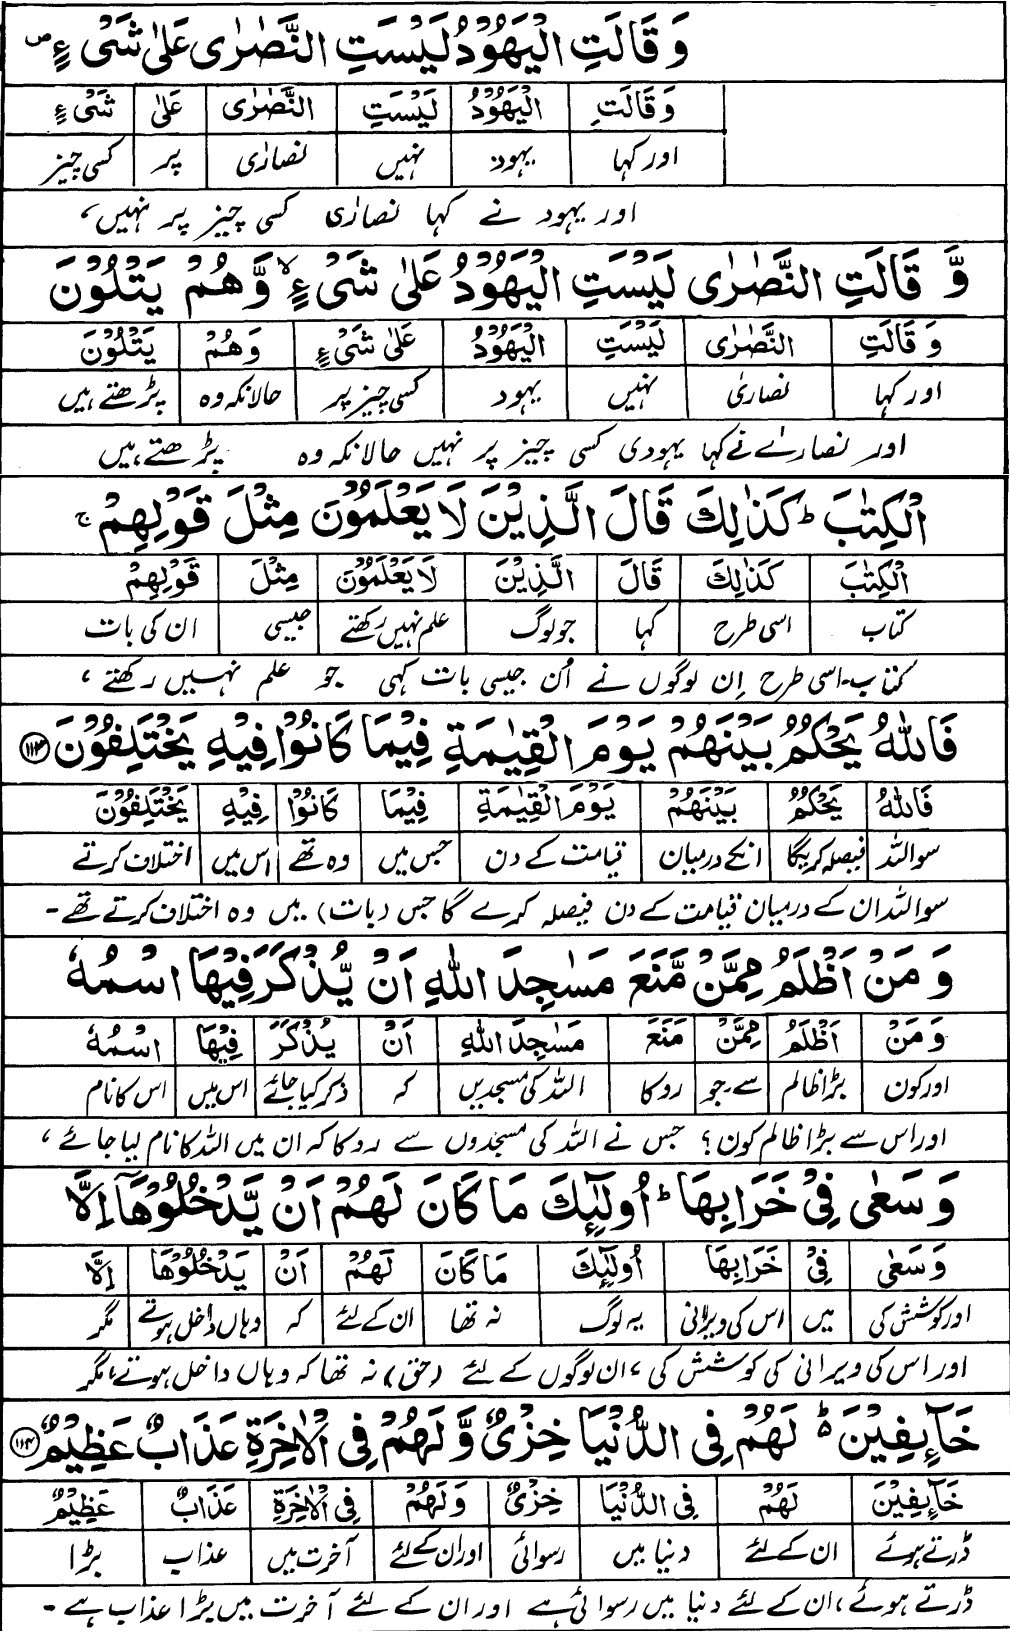 وَ قَالَتِ الْیَهُوْدُ لَیْسَتِ النَّصٰرٰی عَلٰی شَیْءٍ ص
وَ قَالَتِ الْیَهُوْدُ لَیْسَتِ النَّصٰرٰی عَلٰی شَیْءٍ
اور کہا یہود نہیں نصارٰی پر کسی چیز
اور یہود نے کہا نصارٰی کسی چیز پر نہیں،
وَّ قَالَتِ النَّصٰرٰی لَیْسَتِ الْیَهُوْدُ عَلٰی شَیْءٍ لا وَّهُمْ یَتْلُوْنَ
وَ قَالَتِ النَّصٰرٰی لَیْسَتِ الْیَهُوْدُ عَلٰی شَیْءٍ وَهُمْ یَتْلُوْنَ
اور کہا نصاریٰ نہیں یہود کسی چیز پر حالانکہ وہ پڑھتے ہیں
اور نصاریٰ نے کہا یہودی کسی چیز پر نہیں حالانکہ وہ پڑھتے ہیں
الْكِتٰبَ ط كَذٰلِكَ قَالَ الَّذِیْنَ لَا یَعْلَمُوْنَ مِثْلَ قَوْلِهِمْ ج
الْكِتٰبَ كَذٰلِكَ قَالَ الَّذِیْنَ لَا یَعْلَمُوْنَ مِثْلَ قَوْلِهِمْ
کتاب اسی طرح کہا جو لوگ علم نہیں رکھتے جیسی ان کی بات
کتاب۔ اسی طرح اِن لوگوں نے اُن جیسی بات کہی جو علم نہیں رکھتے،
فَاللّٰهُ یَحْكُمُ بَیْنَهُمْ یَوْمَ الْقِیٰمَةِ فِیْمَا كَانُوْا فِیْهِ یَخْتَلِفُوْنَ ۱۱۳
فَاللّٰهُ یَحْكُمُ بَیْنَهُمْ یَوْمَ الْقِیٰمَةِ فِیْمَا كَانُوْا فِیْهِ یَخْتَلِفُوْنَ
سو اللہ فیصلہ کریگا انکے درمیان قیامت کے دن جس میں وہ تھے اس میں اختلاف کرتے
سو اللہ ان کے درمیان قیامت کے دن فیصلہ کرے گا جس (بات) میں وہ اختلاف کرتے تھے۔
وَ مَنْ اَظْلَمُ مِمَّنْ مَّنَعَ مَسٰجِدَ اللّٰهِ اَنْ یُّذْكَرَ فِیْهَا اسْمُهٗ
وَ مَنْ اَظْلَمُ مِمَّنْ مَنَعَ مَسٰجِدَ اللّٰهِ اَنْ یُذْكَرَ فِیْهَا اسْمُهٗ
اور کون بڑا ظالم سے۔ جو روکا اللہ کی مسجدیں کہ ذکر کیا جائے اس میں اس کا نام
اور اس سے بڑا ظالم کون؟ جس نے اللہ کی مسجدوں سے روکا کہ ان میں اللہ کا نام لیا جائے،
وَ سَعٰی فِیْ خَرَابِهَا ط اُولٰٓئِكَ مَا كَانَ لَهُمْ اَنْ یَّدْخُلُوْهَاۤ اِلَّا
وَ سَعٰی فِیْ خَرَابِهَا اُولٰٓئِكَ مَا كَانَ لَهُمْ اَنْ یَدْخُلُوْهَا اِلَّا
اور کوشش کی میں اس کی ویرانی یہ لوگ نہ تھا ان کے لئے کہ وہاں داخل ہوتے مگر
اور اس کی ویرانی کی کوشش کی، ان لوگوں کے لئے (حق) نہ تھا کہ وہاں داخل ہوتے، مگر
خَآئِفِیْنَ ط لَهُمْ فِی الدُّنْیَا خِزْیٌ وَّ لَهُمْ فِی الْاٰخِرَةِ عَذَابٌ عَظِیْمٌ ۱۱۴
خَآئِفِیْنَ لَهُمْ فِی الدُّنْیَا خِزْیٌ وَ لَهُمْ فِی الْاٰخِرَةِ عَذَابٌ عَظِیْمٌ
ڈرتے ہوئے ان کے لئے دنیا میں رسوائی اور ان کے لئے آخرت میں عذاب بڑا
ڈرتے ہوئے، ان کے لئے دنیا میں رسوائی ہے اور ان کے لئے آخرت میں بڑا عذاب ہے۔